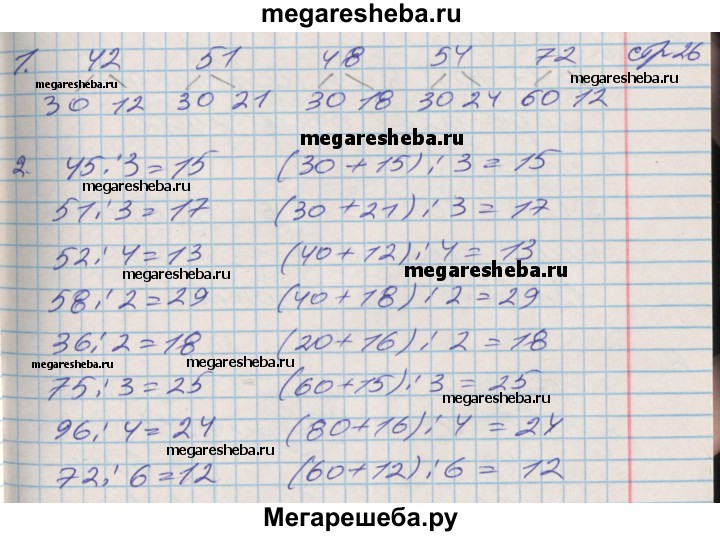 megaresheba.ru
1. 42 51 48 54 72 стр 26
megaresheba.ru megaresheba.ru
30 12 30 21 30 18 30 24 60 12
megaresheba.ru megaresheba.ru
megaresheba.ru
2. 45 : 3 = 15 (30 + 15) : 3 = 15
megaresheba.ru
51 : 3 = 17 (30 + 21) : 3 = 17
52 : 4 = 13 (40 + 12) : 4 = 13
megaresheba.ru megaresheba.ru
58 : 2 = 29 (40 + 18) : 2 = 29
36 : 2 = 18 (20 + 16) : 2 = 18
megaresheba.ru megaresheba.ru
75 : 3 = 25 (60 + 15) : 3 = 25
megaresheba.ru
96 : 4 = 24 (80 + 16) : 4 = 24
megaresheba.ru
72 : 6 = 12 (60 + 12) : 6 = 12
Мегарешеба.ру